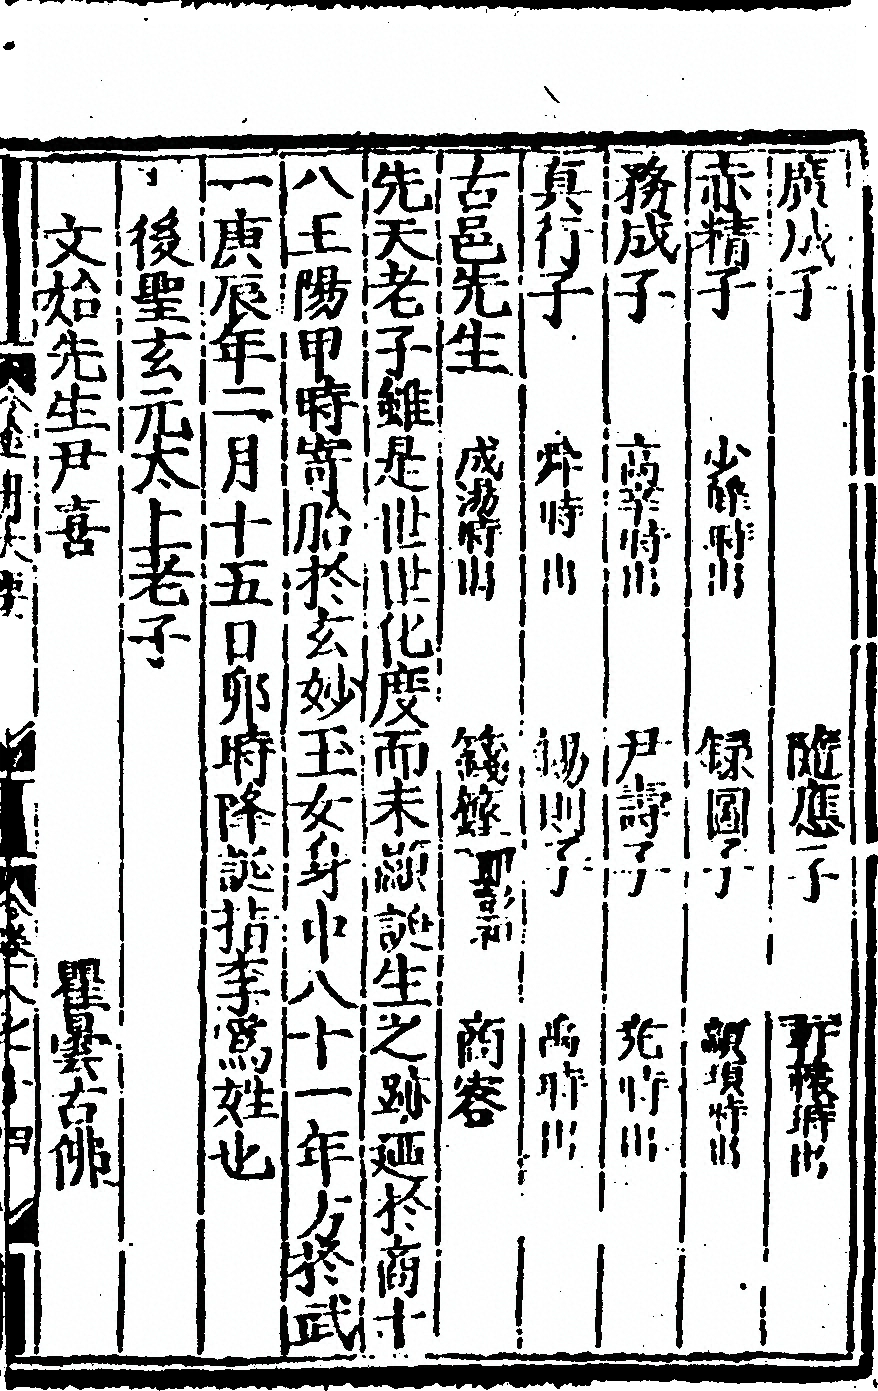 廣成子 隨應子 軒轅時出
赤精子 少皥時出 錄圖子 顓頊時出
務成子 高辛時出 尹壽子 堯時出
真行子 舜時出 錫則子 禹時出
古邑先生 成湯時出 籛鏗 即彭祖 商容
先天老子雖是世世化度而未顯誕生之跡迹於商十
八王陽甲時寄胎於玄妙玉女身中八十一年方於武
一庚辰年二月十五日卯時降誕指李為姓也
後聖玄元太上老子
文始先生尹喜 瞿曇古佛